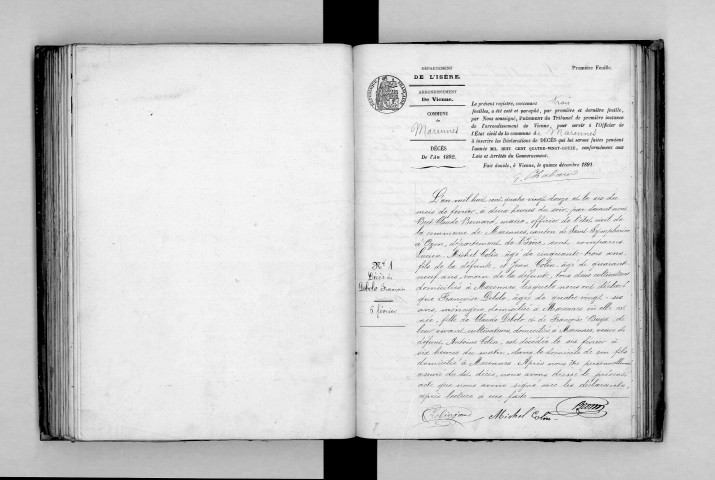 DÉPARTEMENT
DE L'ISÈRE.
ARRONDISSEMENT
De Vienne.
COMMUNE
de
Marennes
DÉCÈS
De l'An 1892.
Première Feuille.
Le présent registre, contenant trois
feuilles, a été coté et paraphé, par première et dernière feuille,
par Nous soussigné, PRÉSIDENT du Tribunal de première instance
de l'arrondissement de Vienne, pour servir à l'Officier de
l'État civil de la commune de Marennes
à inscrire les Déclarations de DÉCÈS qui lui seront faites pendant
l'année MIL HUIT CENT QUATRE-VINGT-DOUZE, conformément aux
Lois et Arrêtés du Gouvernement.
Fait double, à Vienne, le quinze décembre 1891
N° 1
Décès de
Debolo
5 février
L'an mil huit cent quatre vingt douze et le six du
mois de février, à deux heures du soir, par devant nous
Claude Bernard, maire, officier de l'état civil de
la commune de Marennes, canton de Saint Symphorien
d'Ozon, département de l'Isère, sont comparus
Michel Colin, âgé de cinquante trois ans,
fils de la défunte, et Jean Colin, âgé de quarante
neuf ans, de la défunte, tous deux cultivateurs
domiciliés à Marennes lesquels nous ont déclaré
que Françoise Debolo, âgée de quatre vingt six
ans, ménagère, domiciliée à Marennes où elle est
née, fille de Claude Debolo et de Françoise
leur vivant cultivateurs domiciliés à Marennes, veuve de
défunt Antoine Colin, est décédée le six février à
six heures du matin, dans le domicile de son fils
domicilié à Marennes. Après nous être personnellement
assuré du dit décès, nous avons dressé le présent
acte que nous avons signé avec les déclarants,
après lecture à eux faite.
Michel Colin